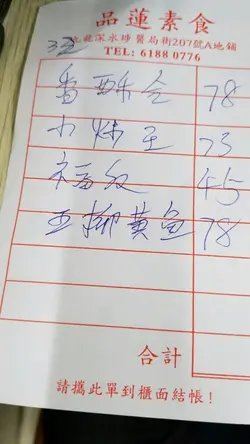 品蓮素食
九龍深水埗醫局街207號A地舖
TEL: 6188 0776
香酥 78
小炒王 73
福 45
五柳黃魚 78
合計
請攜此單到櫃面結帳！